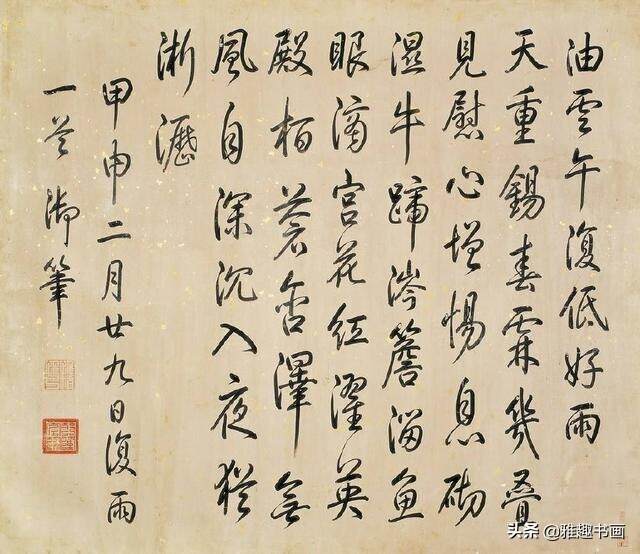 油雲午復低好雨
天重錫春霖幾疊
見慰心增惕息砌
濕牛蹄涔簷溜魚
眼滴宮花紅濯英
殿柏蒼含澤無
風自深沉入夜猶
淅瀝
甲申二月廿九日復雨
一首御筆
头条 @雅趣书画